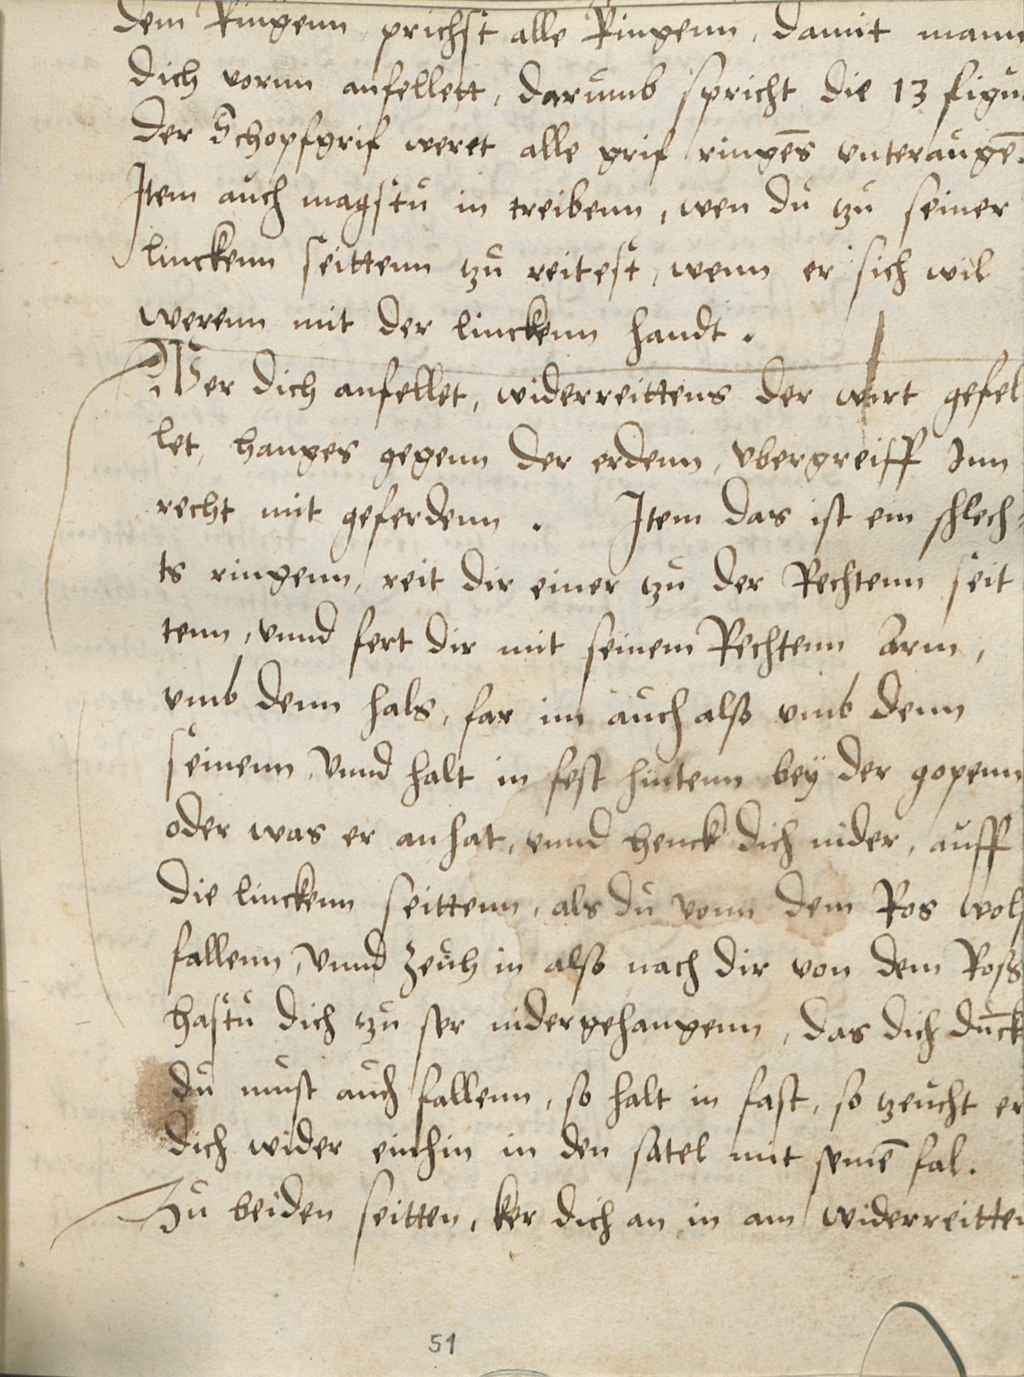 dem Ringenn prichst alle Ringenn, damit mann
dich vornn anfellett, darumb spricht die 13 figur
der Schopfgrif weret alle grif ringes̄ vnteraugē.
Item auch magstu in treibenn, wen du tzu seiner
linckenn seittenn tzu reitest, wenn er sich wil
werenn mit der linckenn handt.
Wer dich anfellet, widerreittens der wirt gefel
let, hanges gegenn der erdenn, vbergreiff Inn
recht mit geferdenn. Item das ist ein schlech=
ts ringenn, reit dir einer tzu der Rechtenn seit
tenn, vnnd fert dir mit seinem Rechtenn Arm,
vmb denn hals, far im auch also vmb denn
seinenn, vnnd halt in fest hintenn bey der gopenn
oder was er anhat, vnnd henck dich nider, auff
die linckenn seittenn, als du vonn dem Ros wolst
fallenn, vnnd zeuh in also nach dir von dem Roß
hastu dich tzu ser nidergehangenn, das dich dūck
du must auch fallenn, so halt in fast, so tzeucht er
dich wider einhin in den satel mit seinē fal.
Zu beiden seitten, ker dich an in am widerreitten
51